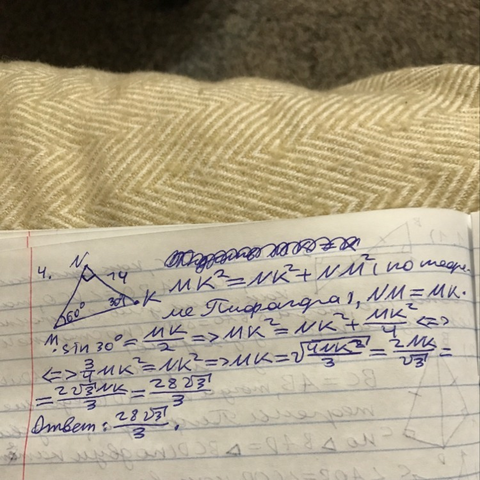 4. N 14 30° K 60° M
MK² = NK² + NM², (по теоре-
ме Пифагора), NM = MK·
· sin 30° = MK/2 => MK² = NK² + MK²/4 <=>
<=> 3/4 MK² = NK² => MK = √(4NK²/3) = 2NK/√3 =
= 2√3NK/3 = 28√3/3
Ответ: 28√3/3.